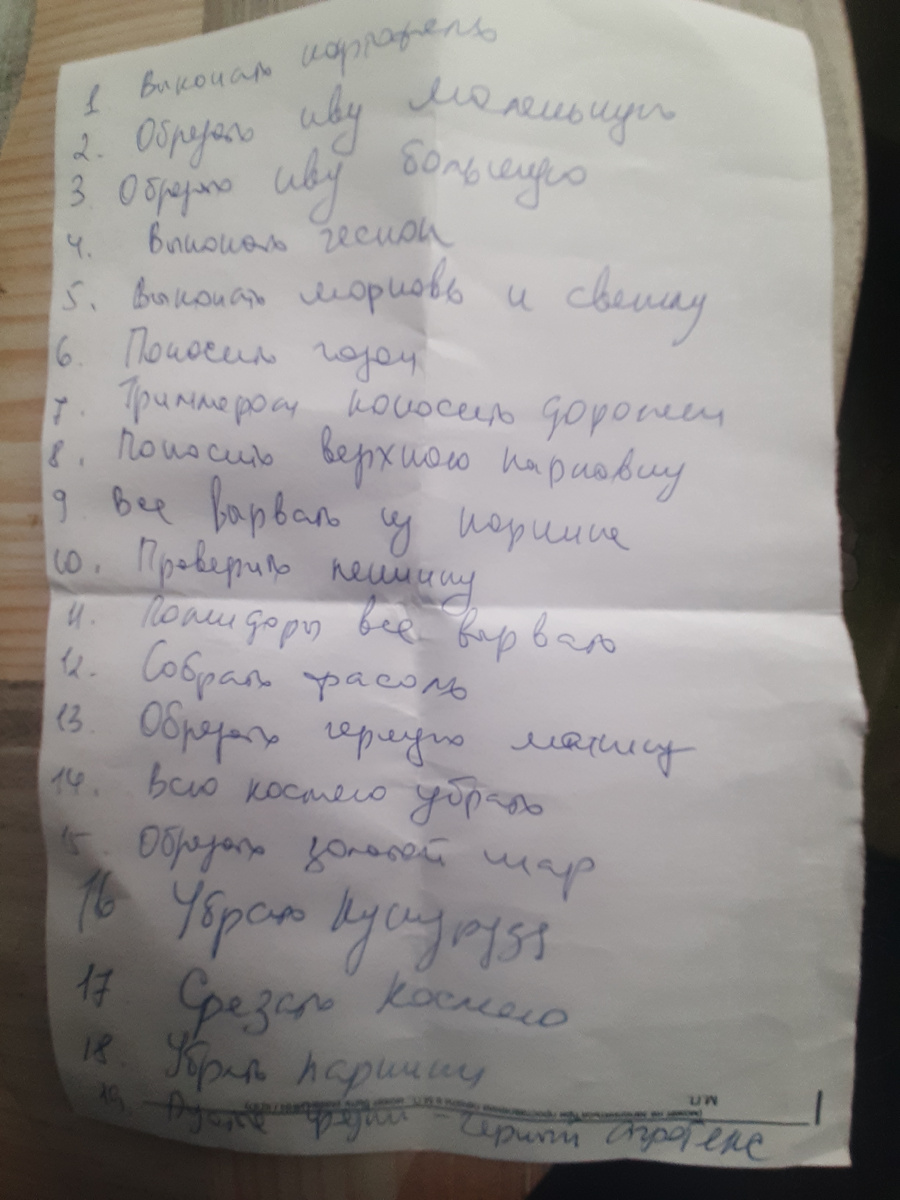 1 Выкопать картофель
2. Обрезать иву маленькую
3 Обрезать иву большую
4. Выкопать чеснок
5. Выкопать морковь и свеклу
6. Покосить газон
7. Триммером покосить дорожки
8. Покосить верхнюю парковку
9 Все вырвать из парника
10. Проверить теплицу
11. Помидоры все вырвать
12. Собрать фасоль
13. Обрезать черную малину
14. Всю космею убрать
15. Обрезать золотой шар
16 Убрать кукурузу
17 Срезать космею
18. Убрать парник
М.П.
19. - черный спротекс